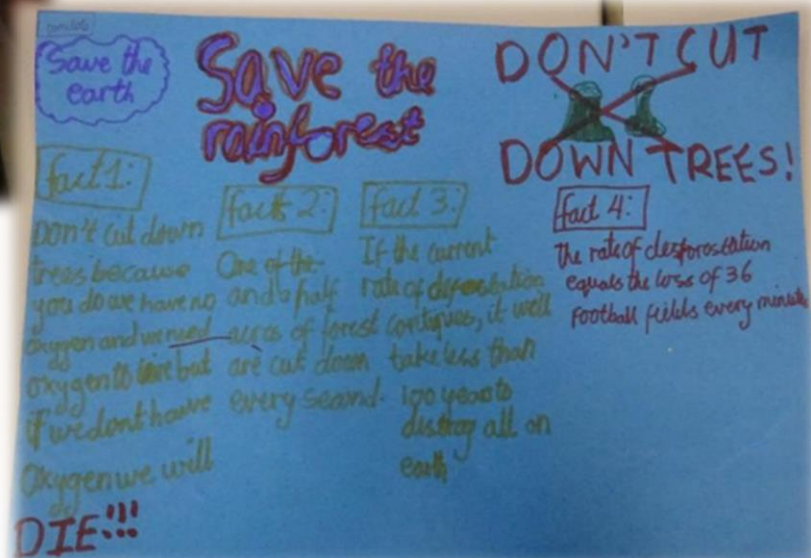 Save the
earth
Save the
rainforest
DON'T CUT
DOWN TREES!
fact 1:
Don't cut down
trees because
you do we have no
oxygen and we need
oxygen to live but
if we dont have
oxygen we will
DIE!!!
fact 2:
One of the
and a half
acros of forest
are cut down
every second.
fact 3:
If the current
rate of deforestation
contiques, it well
take less than
100 years to
distroy all on
earth
fact 4:
The rate of desforostation
equals the loss of 36
football fields every minute